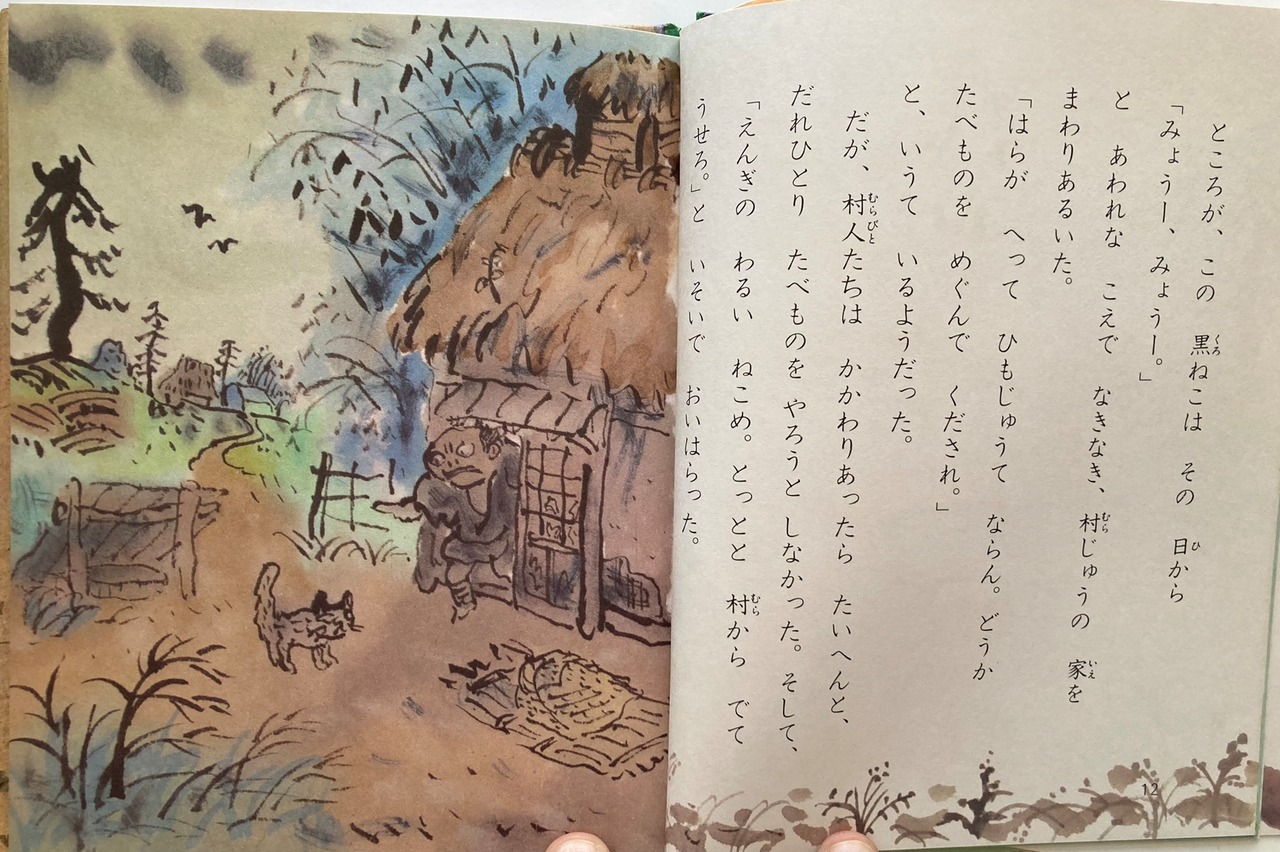 ところが、この　黒ねこは　その　日から
「みょうー、みょうー。」
と　あわれな　こえで　なきなき、村じゅうの　家を
まわりあるいた。
「はらが　へって　ひもじゅうて　ならん。どうか
たべものを　めぐんで　くだされ。」
と、いうて　いるようだった。
だが、村人たちは　かかわりあったら　たいへんと、
だれひとり　たべものを　やろうと　しなかった。そして、
「えんぎの　わるい　ねこめ。とっとと　村から　でて
うせろ。」と　いそいで　おいはらった。
12